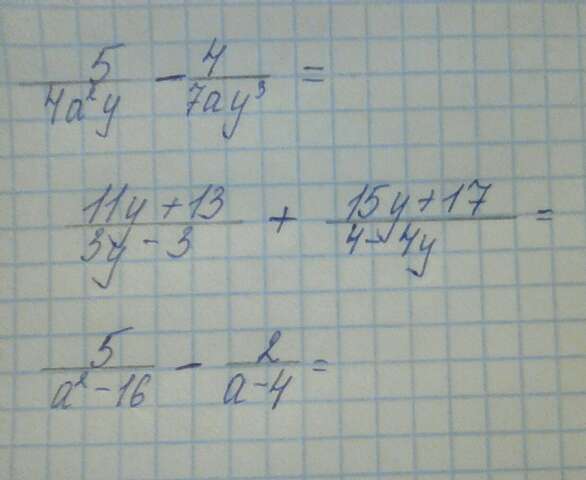 5/(4a²y) - 4/(7ay³) =
(11y + 13)/(3y - 3) + (15y + 17)/(4 - 4y) =
5/(a² - 16) - 2/(a - 4) =